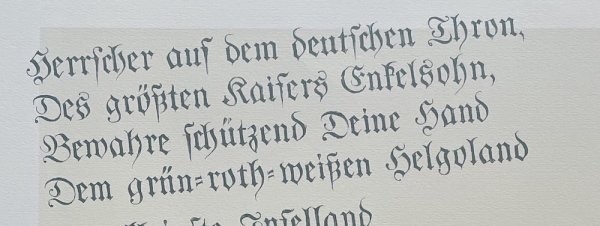 Herrscher auf dem deutschen Thron,
Des größten Kaisers Enkelsohn,
Bewahre schützend Deine Hand
Dem grün=roth=weißen Helgoland
Inselland